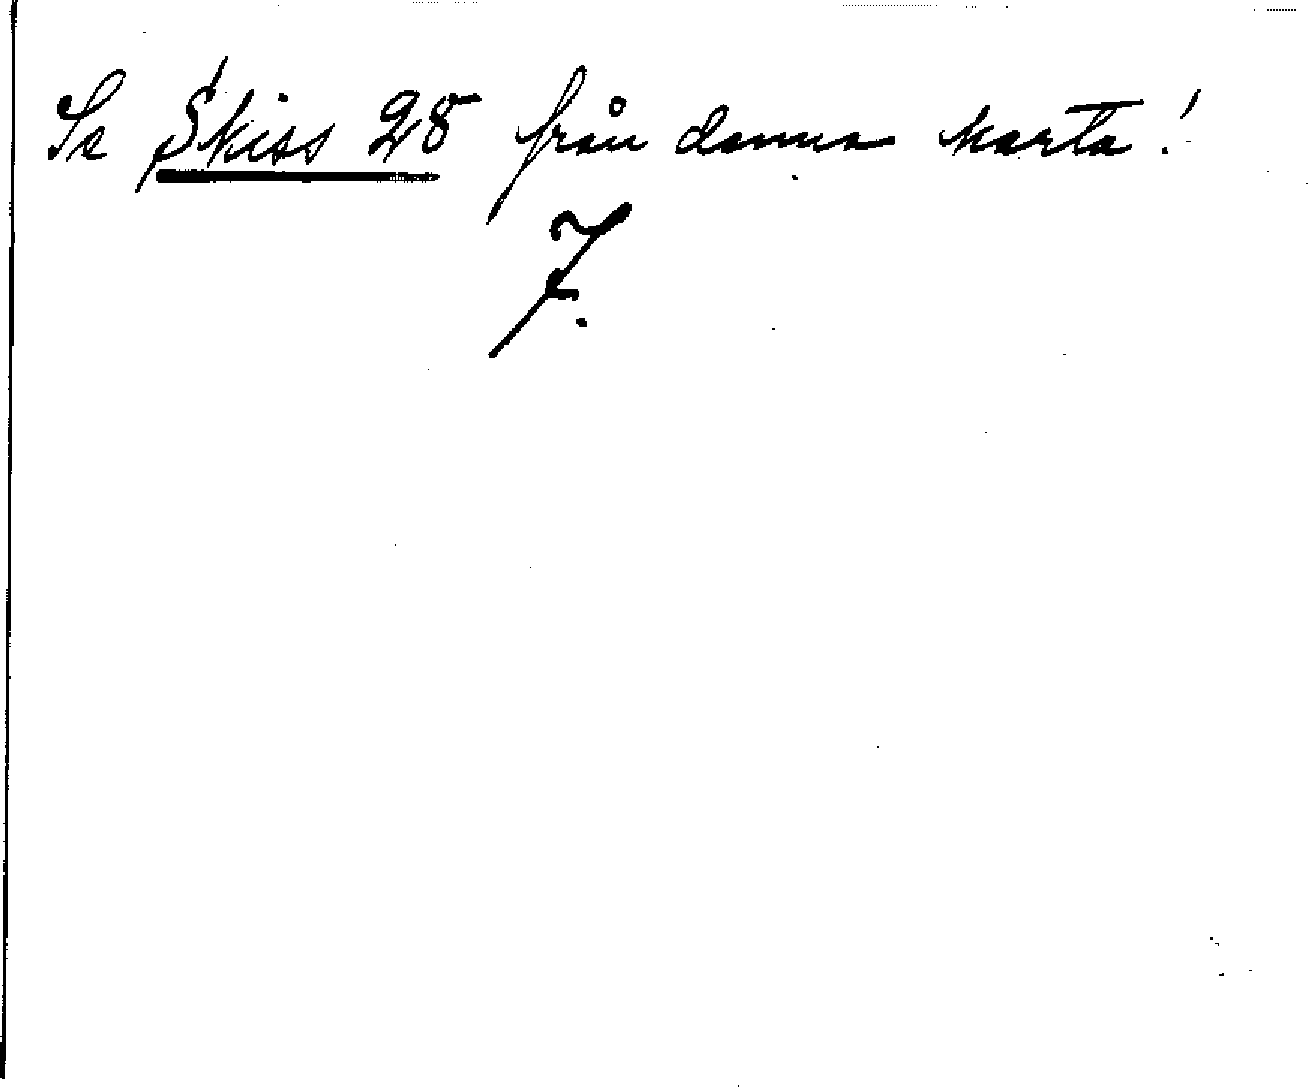 Se Skiss 28 från denna karta!
7.